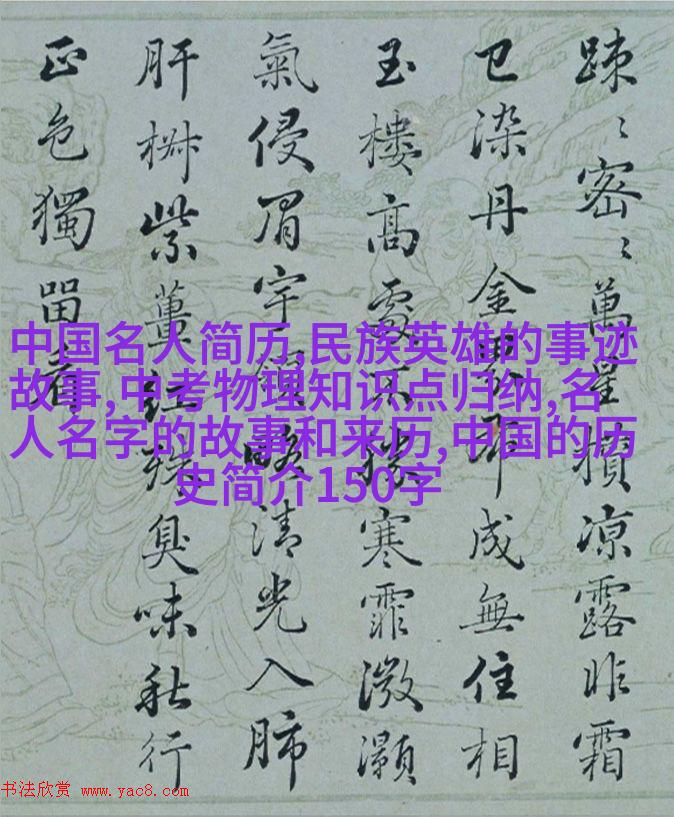 踈〻密〻萬星凉露昨霜
已染丹金成無住相
玉樓高處不寒霏溦灝
氣侵眉宇領略清光入肺
肝紫紅殊臭味秋行
正色獨留看
中国名人简历,民族英雄的事迹
故事,中考物理知识点归纳,名
人名字的故事和来历,中国的历
史简介150字
书法欣赏 www.yac8.com